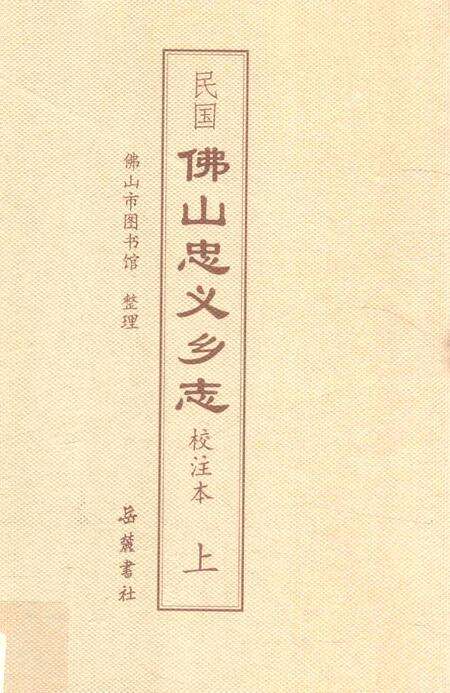 民国
佛山忠义乡志
校注本
上
佛山市图书馆 整理
岳麓書社